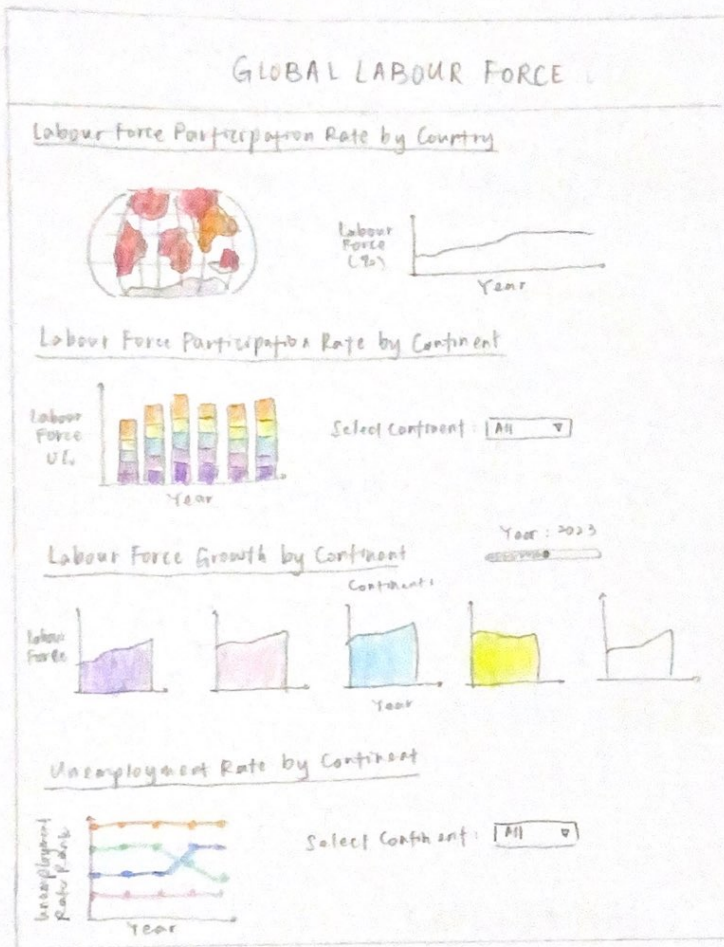 GLOBAL LABOUR FORCE
Labour Force Participation Rate by Country
Labour
Force
(%)
Year
Labour Force Participation Rate by Continent
Labour
Force
Year
Select Continent: All
Labour Force Growth by Continent
Year: 2023
Continent:
Labour
Force
Year
Unemployment Rate by Continent
Unemployment
Rate Rank
Year
Select Continent: All